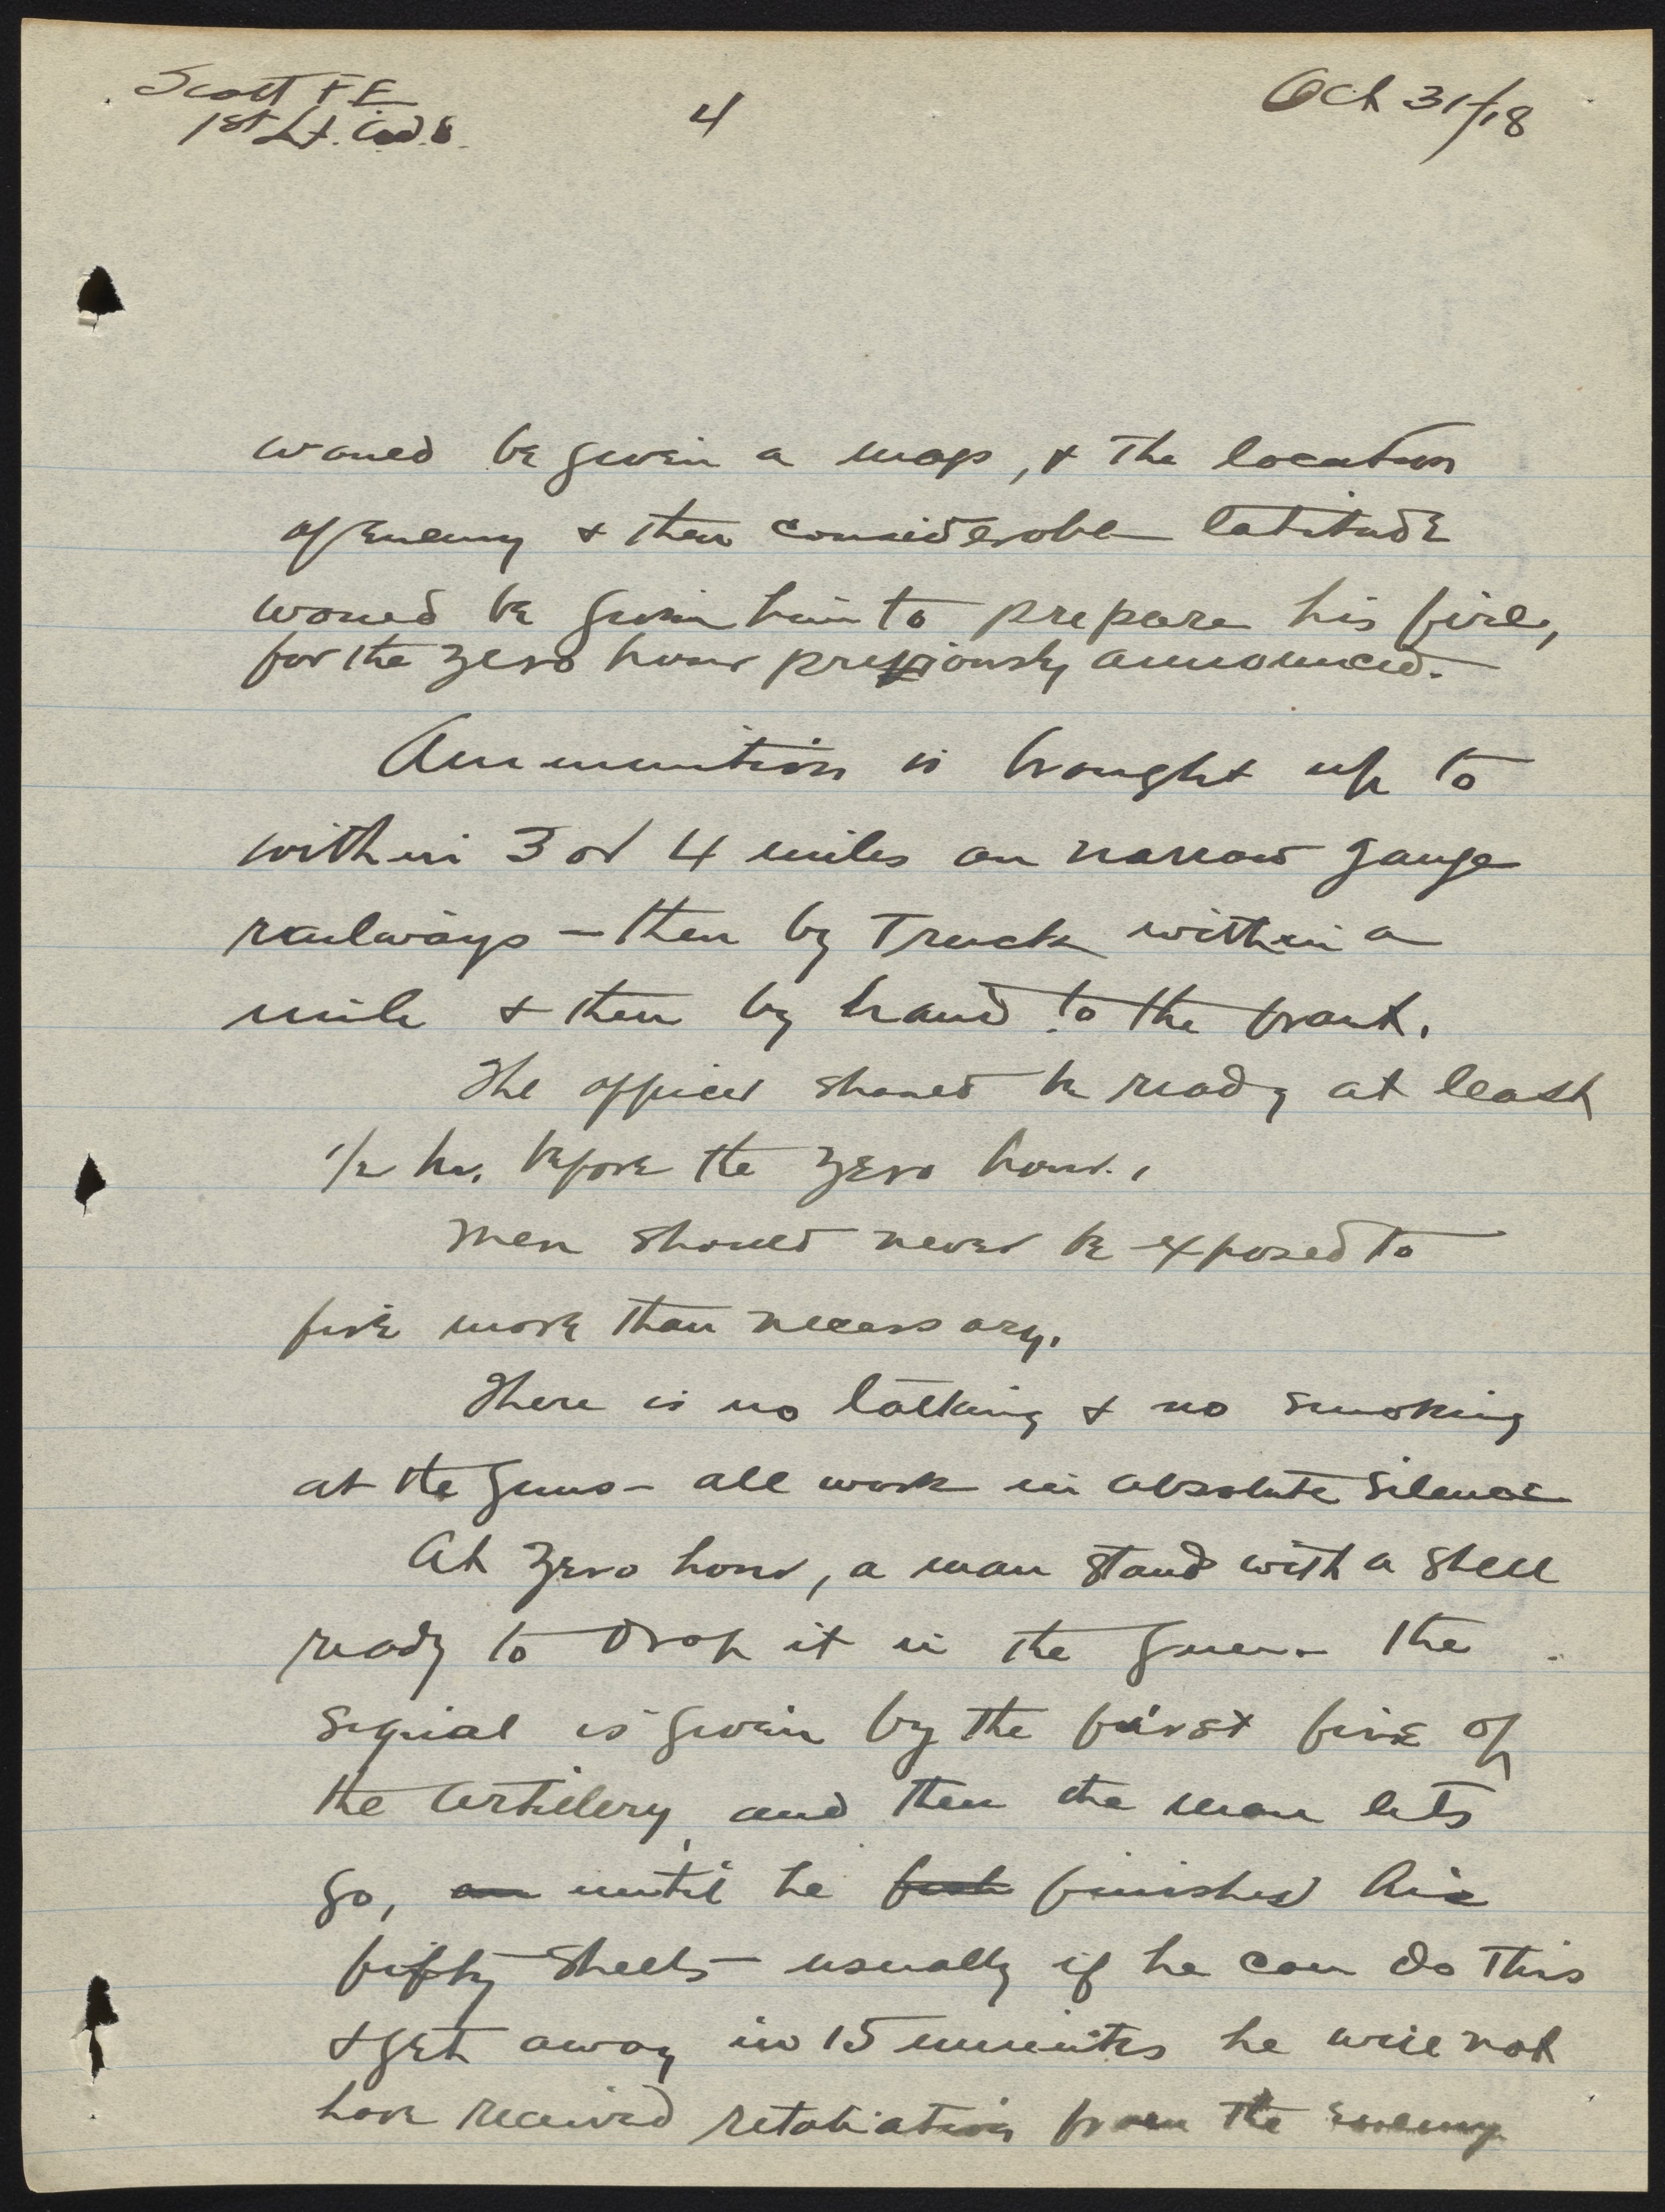 Scott F E
1st Lt.
4
Oct 31/18
would be given a map, & the location
of enemy & then considerable latitude
would be given him to prepare his fire,
for the zero hour previously announced.
Ammunition is brought up to
within 3 or 4 miles on narrow gauge
railways – then by Truck within a
mile & then by hand to the front.
The officer should be ready at least
1/2 hr. before the zero hour.
Men should never be exposed to
fire more than necessary.
There is no talking & no smoking
at the guns – all work in absolute silence
At zero hour, a man stands with a shell
ready to drop it in the gun – the
signal is given by the first fire of
the artillery, and then the man lets
go, until he finished his
fifty shells – usually if he can do this
& get away in 15 minutes he will not
have received retaliation from the enemy